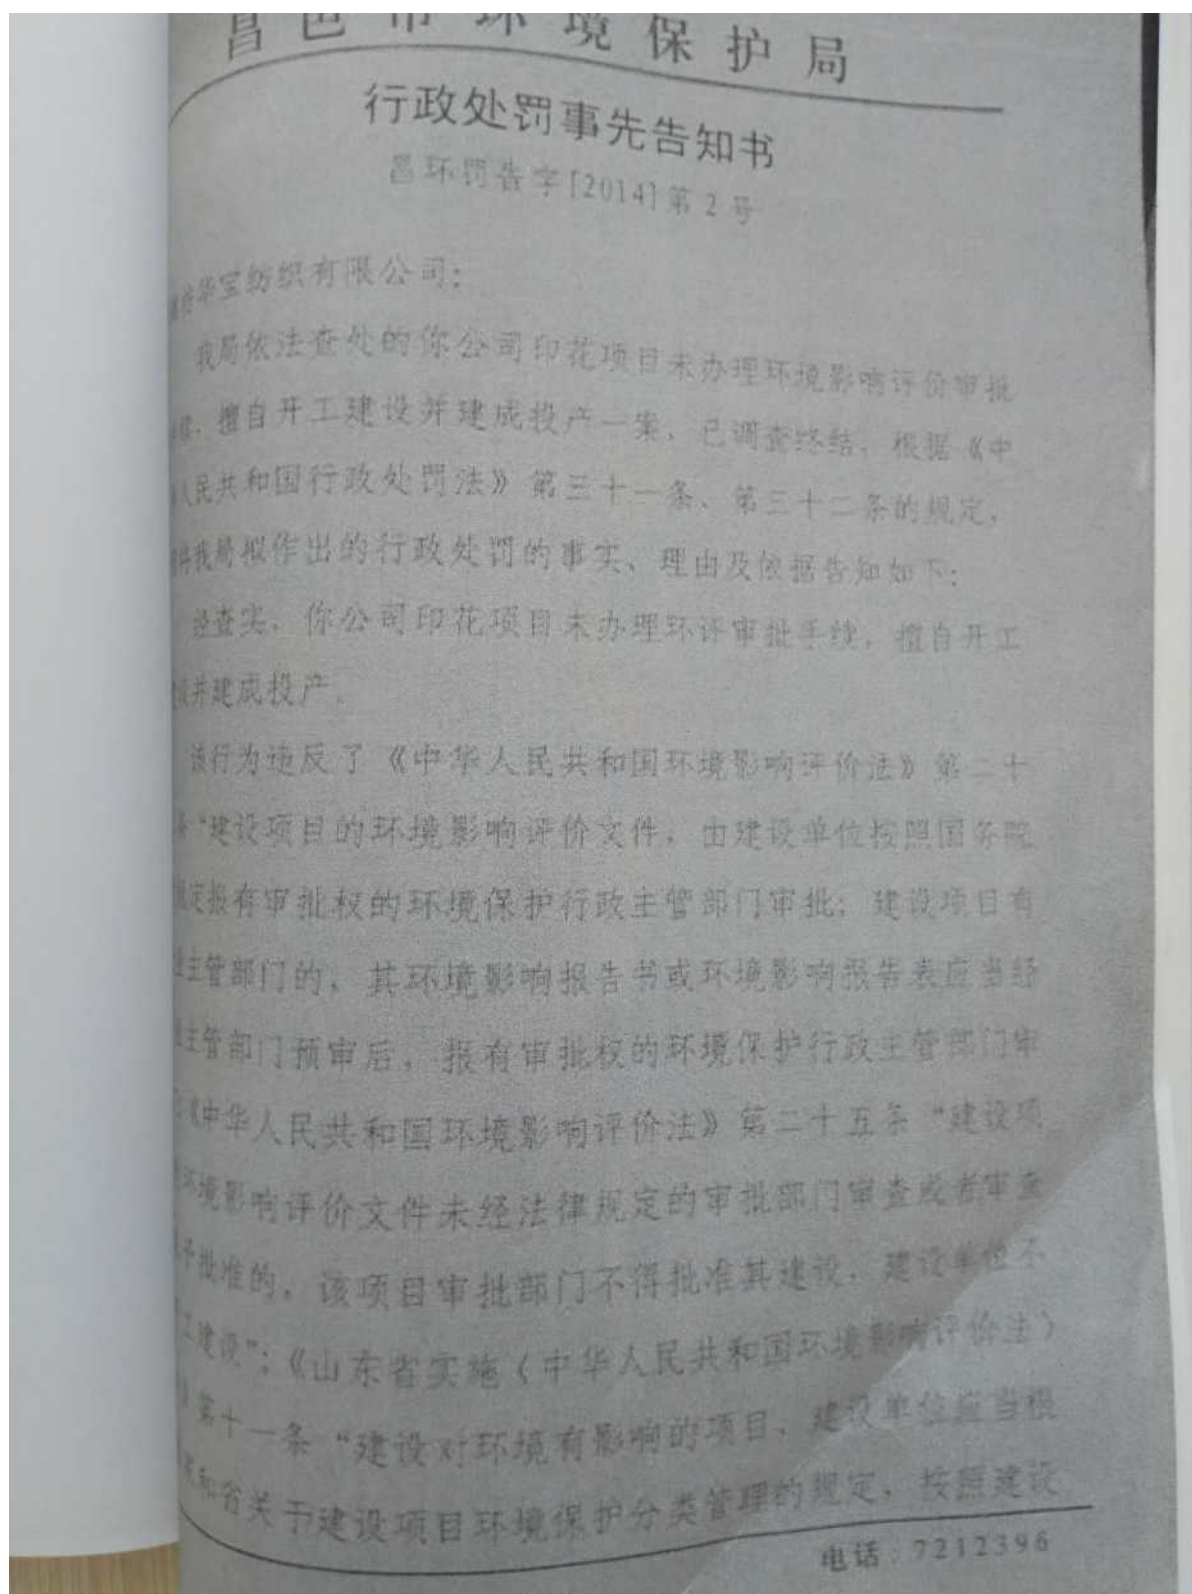 昌邑市环境保护局
行政处罚事先告知书
昌环罚告字[2014]第2号
华宝纺织有限公司：
我局依法查处的你公司印花项目未办理环境影响评价审批
续，擅自开工建设并建成投产一案，已调查终结，根据《中
人民共和国行政处罚法》第三十一条、第三十二条的规定，
将我局拟作出的行政处罚的事实、理由及依据告知如下：
经查实，你公司印花项目未办理环评审批手续，擅自开工
设并建成投产。
该行为违反了《中华人民共和国环境影响评价法》第二十
条“建设项目的环境影响评价文件，由建设单位按照国务院
规定报有审批权的环境保护行政主管部门审批；建设项目有
业主管部门的，其环境影响报告书或环境影响报告表应当经
业主管部门预审后，报有审批权的环境保护行政主管部门审
《中华人民共和国环境影响评价法》第二十五条“建设项
环境影响评价文件未经法律规定的审批部门审查或者审查
予批准的，该项目审批部门不得批准其建设，建设单位不
工建设”；《山东省实施〈中华人民共和国环境影响评价法〉
》第十一条“建设对环境有影响的项目，建设单位应当根
家和省关于建设项目环境保护分类管理的规定，按照建设
电话：7212396